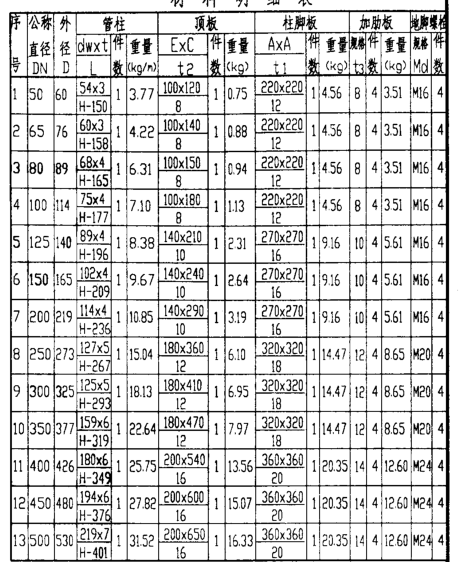 材料明细表
序号 公称直径DN 外径D 管柱 顶板 柱脚板 加肋板 地脚螺栓
dwxt L 件数 重量(kg/m) ExC t2 件数 重量(kg) AxA t1 件数 重量(kg) 规格t3 件数 重量(kg) 规格Md 件数
1 50 60 54x3 H-150 1 3.77 100x120 8 1 0.75 220x220 12 1 4.56 8 4 3.51 M16 4
2 65 76 60x3 H-158 1 4.22 100x140 8 1 0.88 220x220 12 1 4.56 8 4 3.51 M16 4
3 80 89 68x4 H-165 1 6.31 100x150 8 1 0.94 220x220 12 1 4.56 8 4 3.51 M16 4
4 100 114 75x4 H-177 1 7.10 100x180 8 1 1.13 220x220 12 1 4.56 8 4 3.51 M16 4
5 125 140 89x4 H-196 1 8.38 140x210 10 1 2.31 270x270 16 1 9.16 10 4 5.61 M16 4
6 150 165 102x4 H-209 1 9.67 140x240 10 1 2.64 270x270 16 1 9.16 10 4 5.61 M16 4
7 200 219 114x4 H-236 1 10.85 140x290 10 1 3.19 270x270 16 1 9.16 10 4 5.61 M16 4
8 250 273 127x5 H-267 1 15.04 180x360 12 1 6.10 320x320 18 1 14.47 12 4 8.65 M20 4
9 300 325 125x5 H-293 1 18.13 180x410 12 1 6.95 320x320 18 1 14.47 12 4 8.65 M20 4
10 350 377 159x6 H-319 1 22.64 180x470 12 1 7.97 320x320 18 1 14.47 12 4 8.65 M20 4
11 400 426 180x6 H-349 1 25.75 200x540 16 1 13.56 360x360 20 1 20.35 14 4 12.60 M24 4
12 450 480 194x6 H-376 1 27.82 200x600 16 1 15.07 360x360 20 1 20.35 14 4 12.60 M24 4
13 500 530 219x7 H-401 1 31.52 200x650 16 1 16.33 360x360 20 1 20.35 14 4 12.60 M24 4